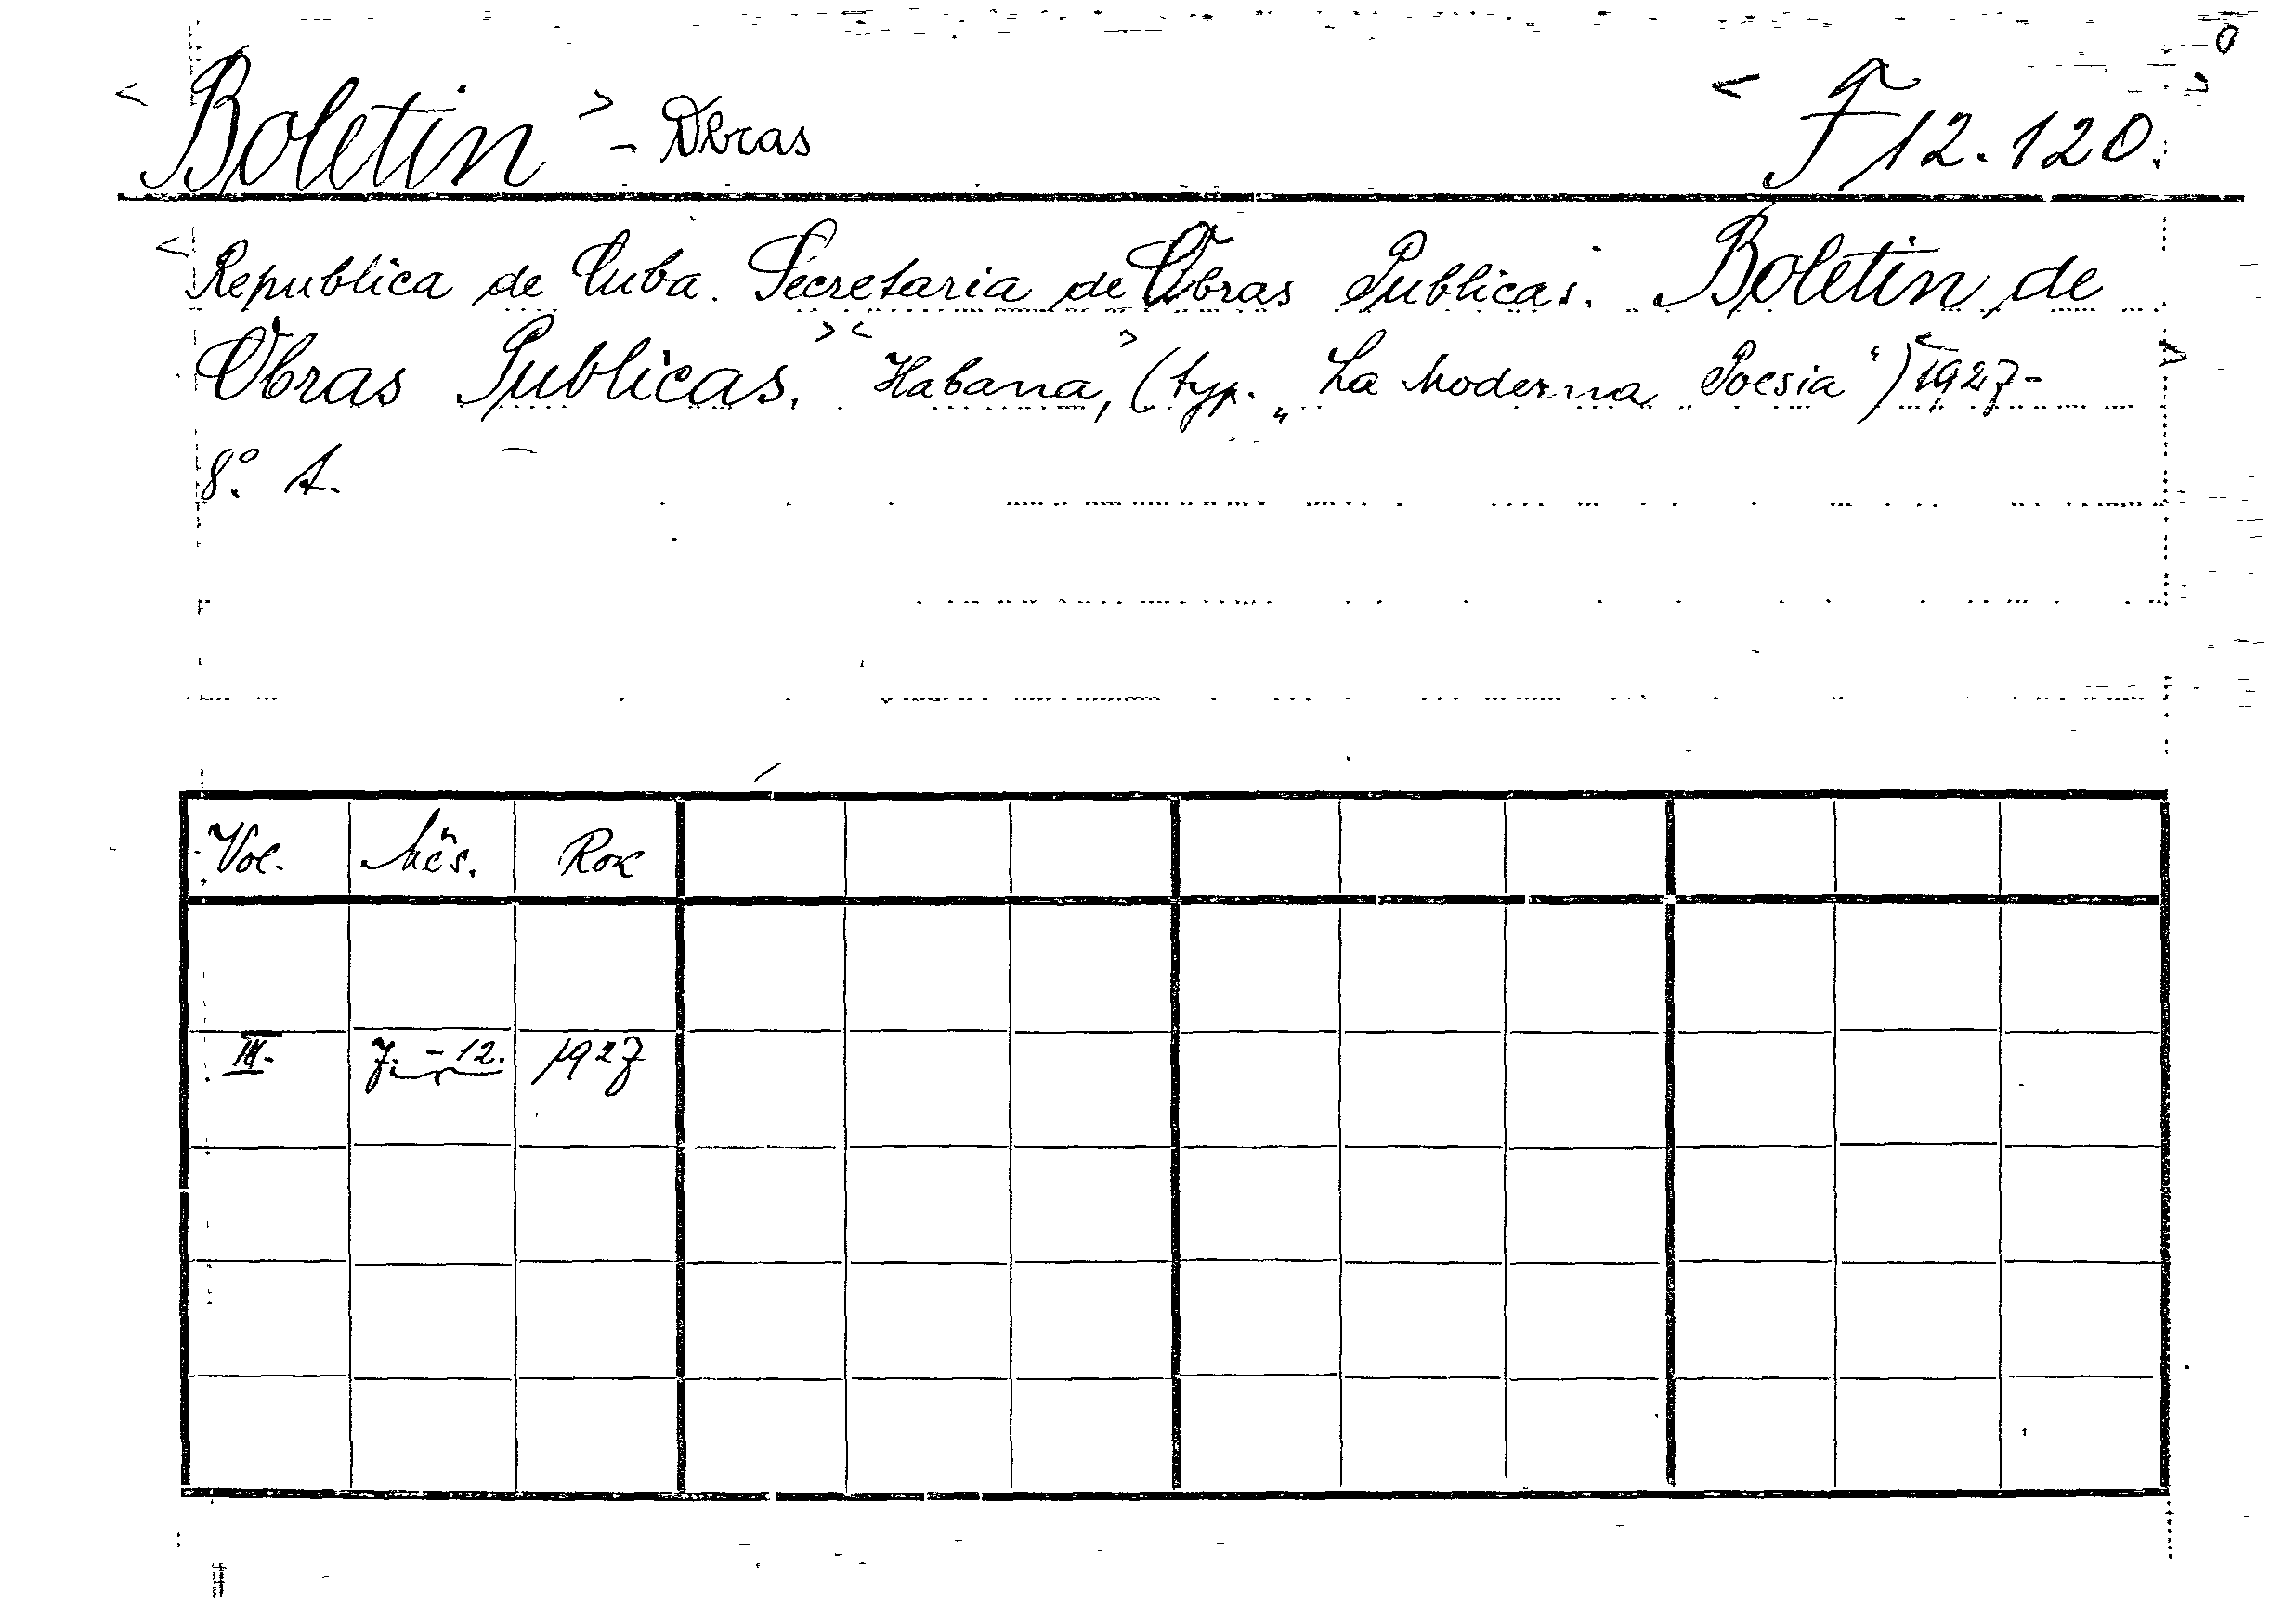 <Boletin> - Obras <F 12.120.>
<Republica de Cuba. Secretaria de Obras Publicas. Boletin de
Obras Publicas.> <Habana,> (typ. „La Moderna Poesia“) <1927->
8°. A.
Vol. Měs. Rok
III. 7. - 12. 1927